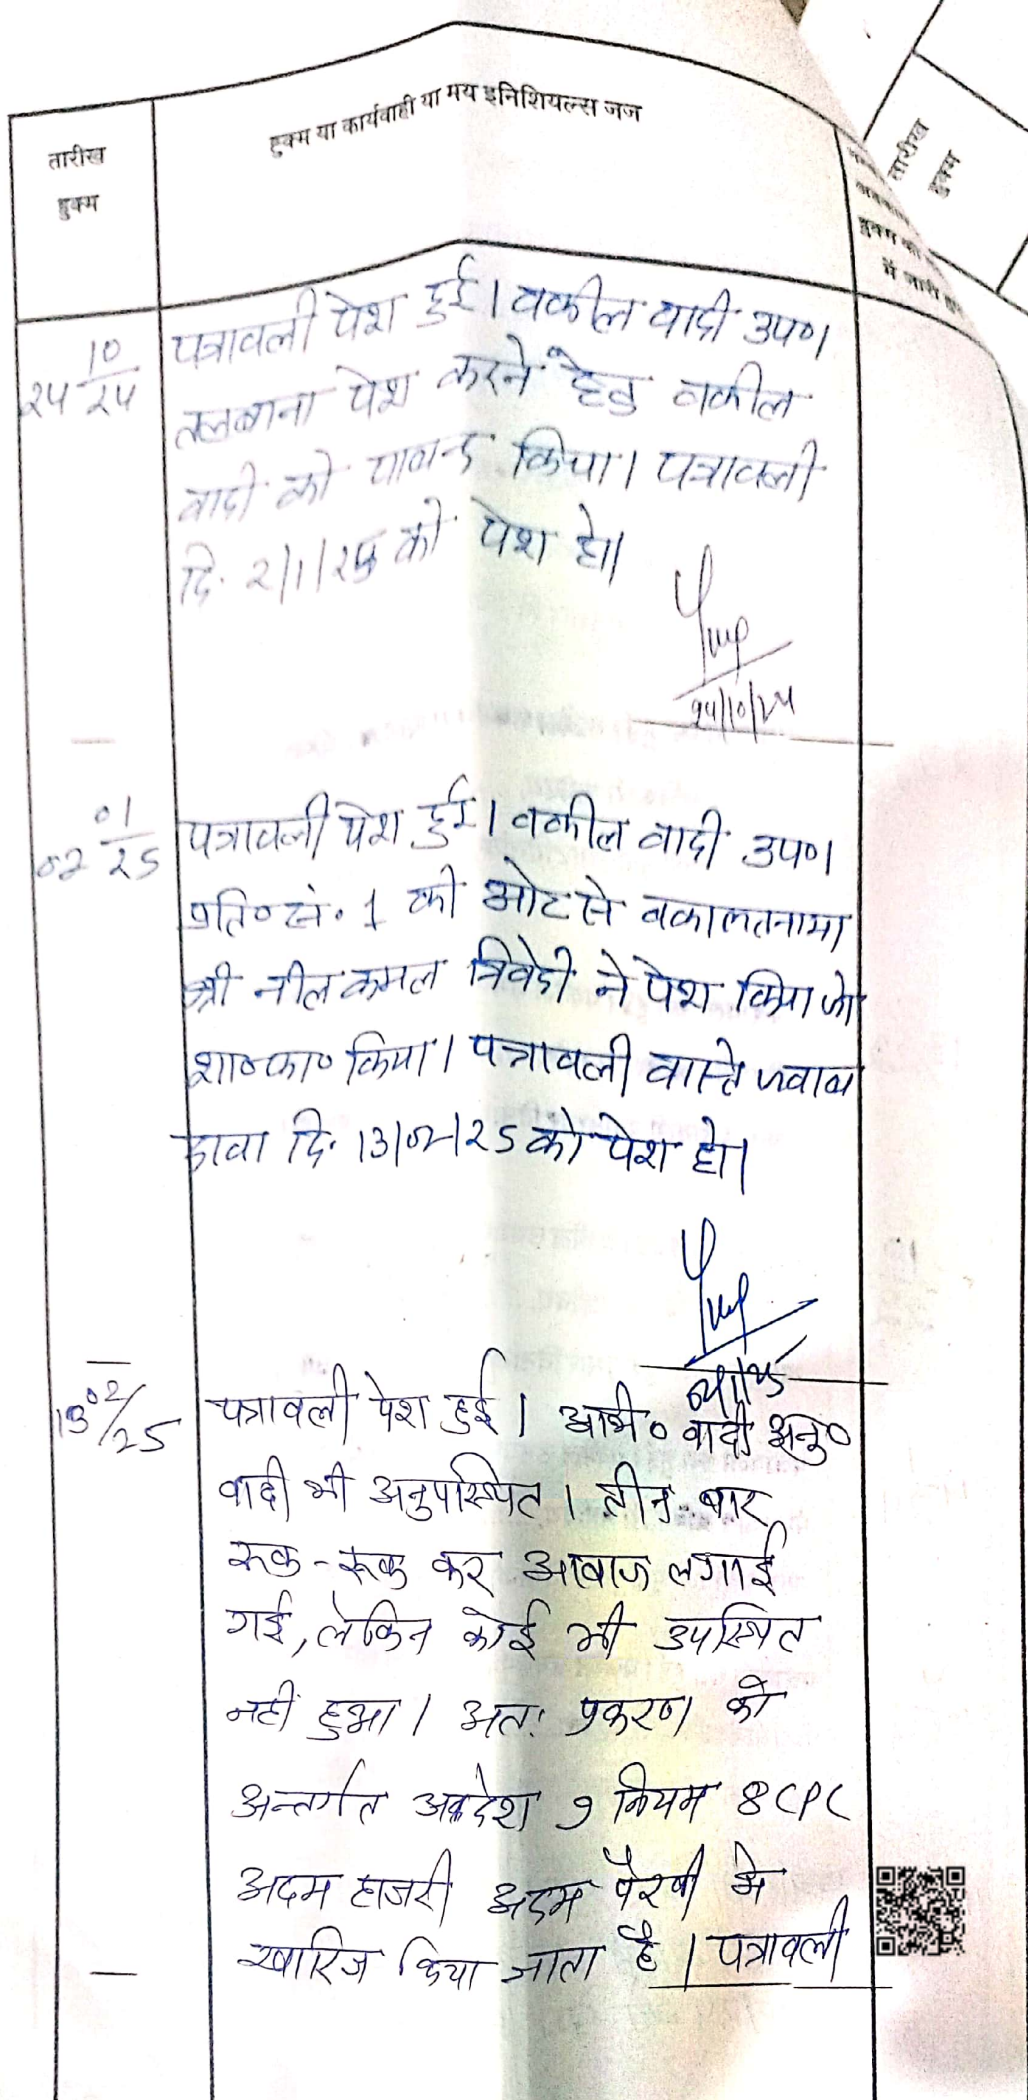 तारीख
हुक्म
हुक्म या कार्यवाही या मय इनिशियल्स जज
हुक्म
में जारी
तारीख
हुक्म
24 10/24
पत्रावली पेश हुई। वकील वादी उप०।
तलबाना पेश करने हेतु वकील
वादी को पाबन्द किया। पत्रावली
दि. 2/1/25 को पेश हो।
24/10/24
02 01/25
पत्रावली पेश हुई। वकील वादी उप०।
प्रति० सं. 1 की ओर से वकालतनामा
श्री नील कमल त्रिवेदी ने पेश किया जो
शा०फा० किया। पत्रावली वास्ते जवाब
दावा दि. 13/02/25 को पेश हो।
13 02/25
पत्रावली पेश हुई। अभि० वादी अनु०
वादी भी अनुपस्थित। तीन बार
रूक-रूक कर आवाज लगाई
गई, लेकिन कोई भी उपस्थित
नही हुआ। अतः प्रकरण को
अन्तर्गत आदेश 9 नियम 8 CPC
अदम हाजरी अदम पैरवी मे
खारिज किया जाता है। पत्रावली